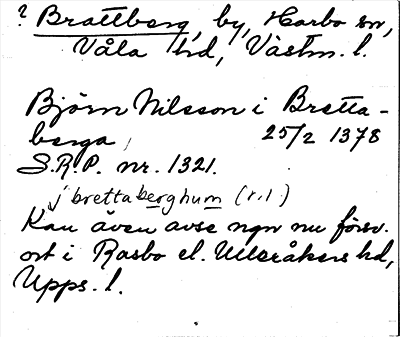 ? Brattberg, by, Harbo sn,
Våla hd, Västm. l.
Björn Nilsson i Bretta-
berga 25/2 1378
S.R.P. nr. 1321.
j brettaberghum (r.1)
Kan även avse ngn nu försv.
ort i Rasbo el. Ulleråkers hd,
Upps. l.